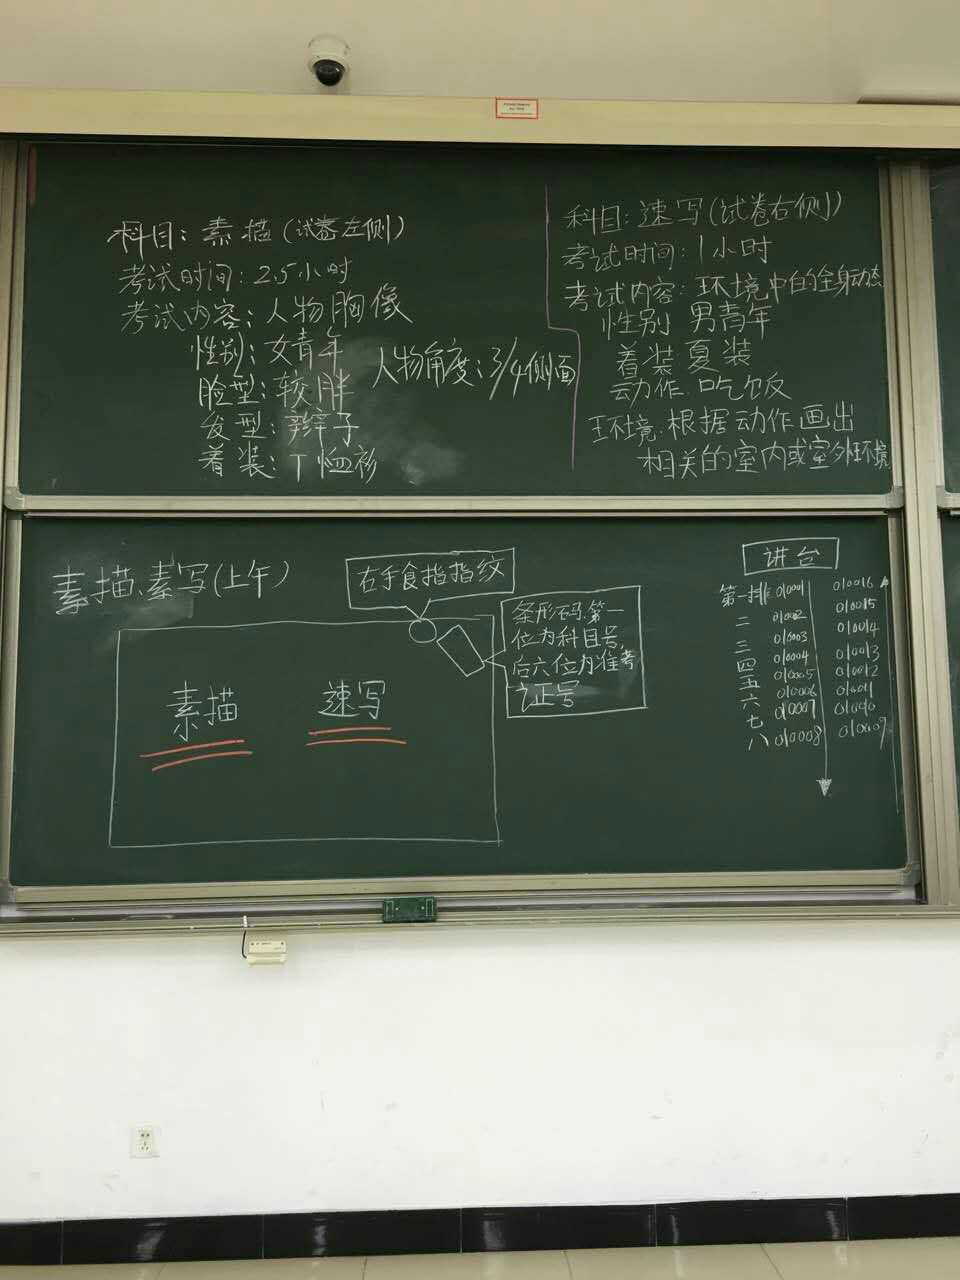 科目：素描（试卷左侧）
考试时间：2.5小时
考试内容：人物胸像
性别：女青年
脸型：较胖
发型：辫子
着装：T恤衫
人物角度：3/4侧面
科目：速写（试卷右侧）
考试时间：1小时
考试内容：环境中的全身动态
性别 男青年
着装 夏装
动作 吃饭
环境 根据动作画出
相关的室内或室外环境
素描、素写（上午）
右手食指指纹
条形码：第一
位为科目号，
后六位为准考
证号
素描 速写
讲台
第一排 010001 010016
二 010002 010015
三 010003 010014
四 010004 010013
五 010005 010012
六 010006 010011
七 010007 010010
八 010008 010009